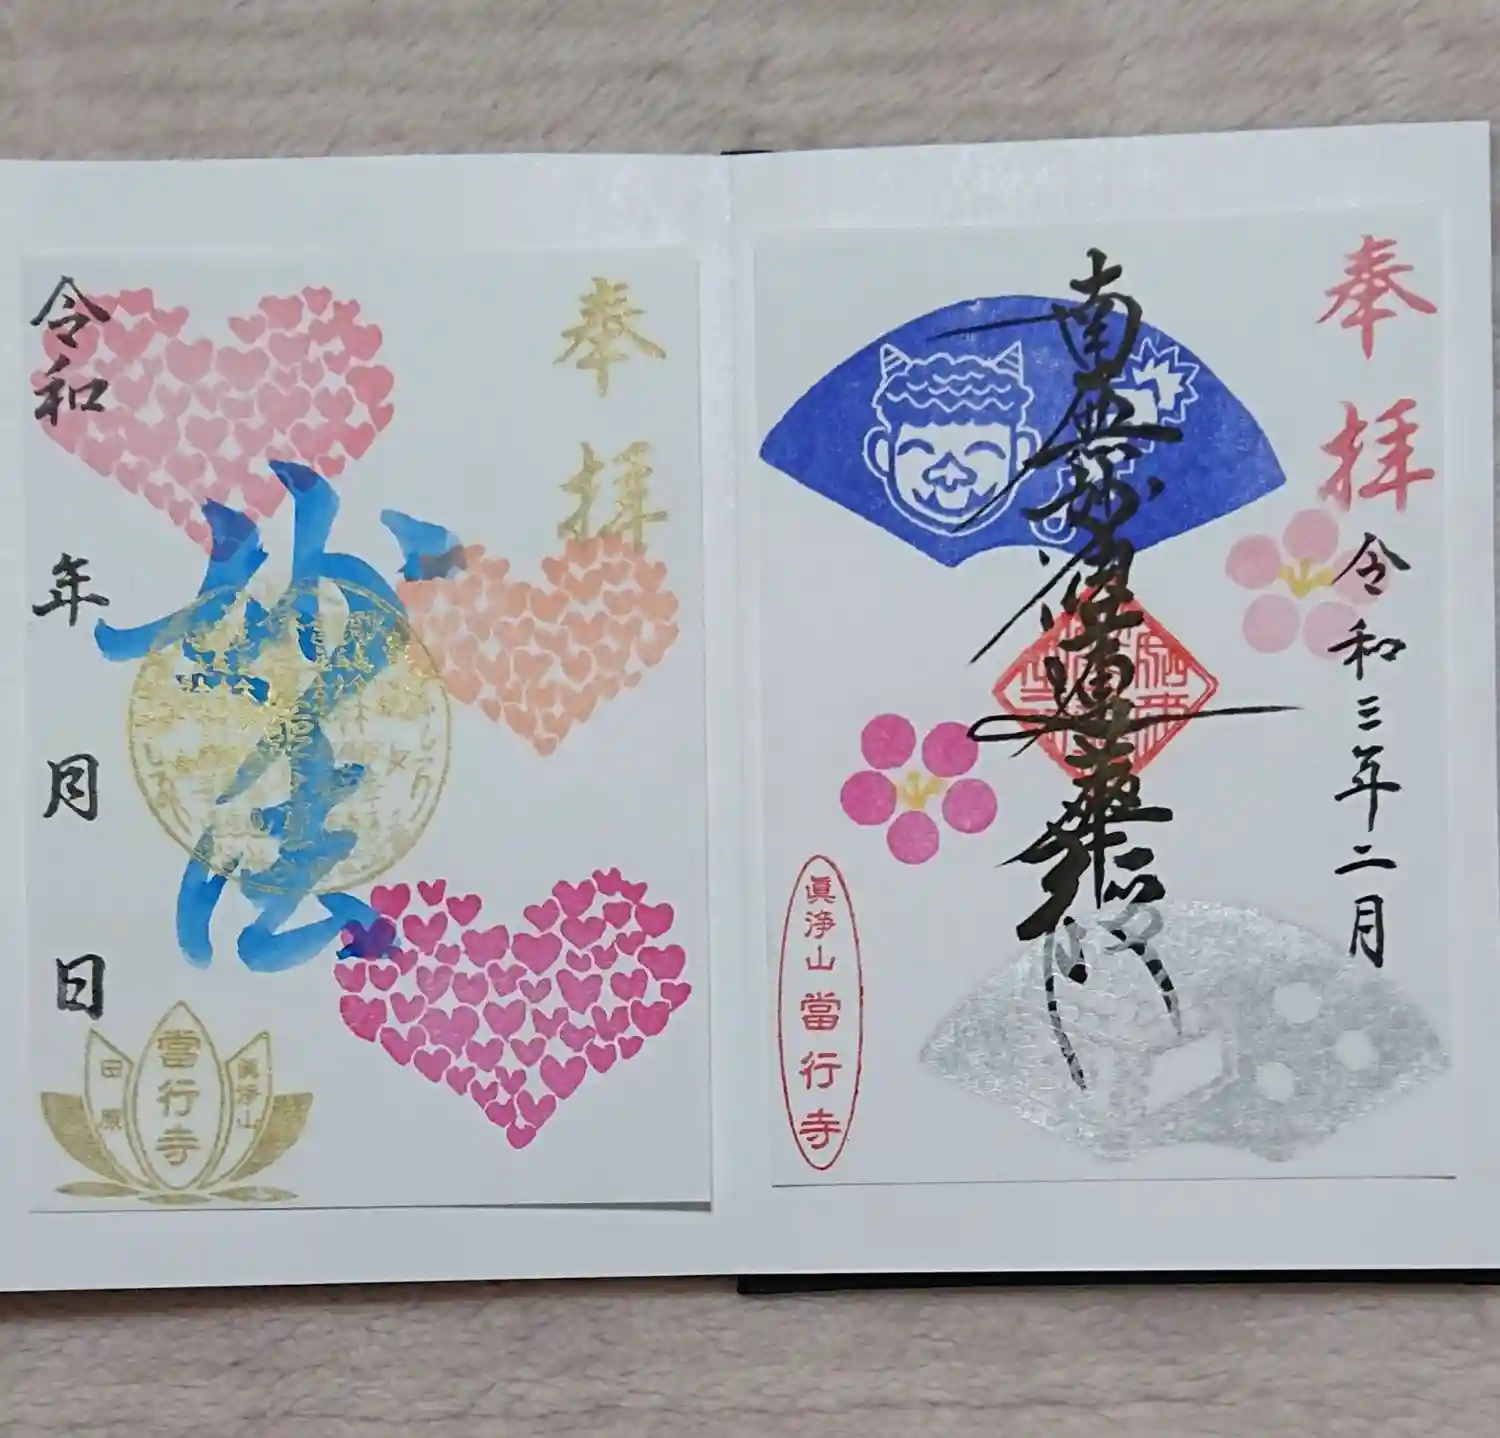 奉拝
令和三年二月
南無妙法蓮華経
眞浄山當行寺
奉拝
妙法
令和
年
月
日
眞浄山
當行寺
田原